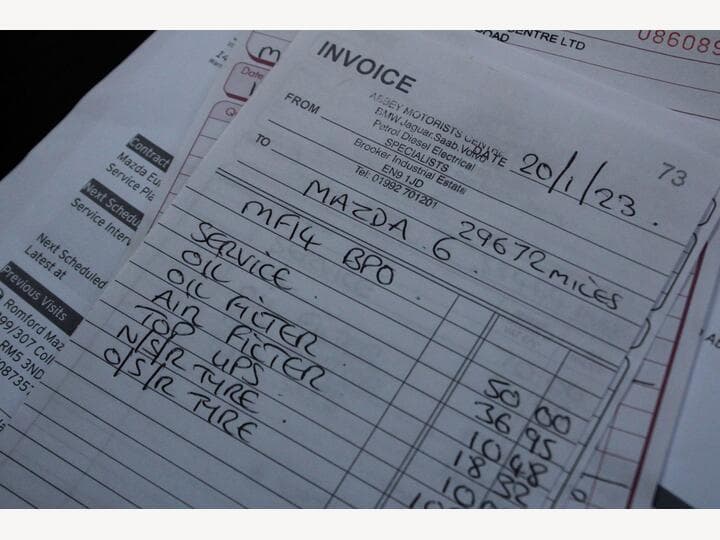 CENTRE LTD
ROAD
086089
Date
INVOICE
73
ABBEY MOTORISTS CENTRE
BMW.Jaguar.Saab.Volvo
Petrol Diesel Electrical
SPECIALISTS
Brooker Industrial Estate
EN9 1JD
Tel: 01992 701201
FROM
DATE 20/1/23.
TO
MAZDA 6. 29672 MILES
MF14 BPO
SERVICE. 50 00
OIL FILTER 36 95
AIR FILTER 10 48
TOP UPS 18 32
N/S/R TYRE
O/S/R TYRE
Contract
Mazda Eu
Service Pla
Next Schedu
Service Inter
Next Scheduled
Latest at
Previous Visits
Romford Maz
99/307 Coll
RM5 3ND